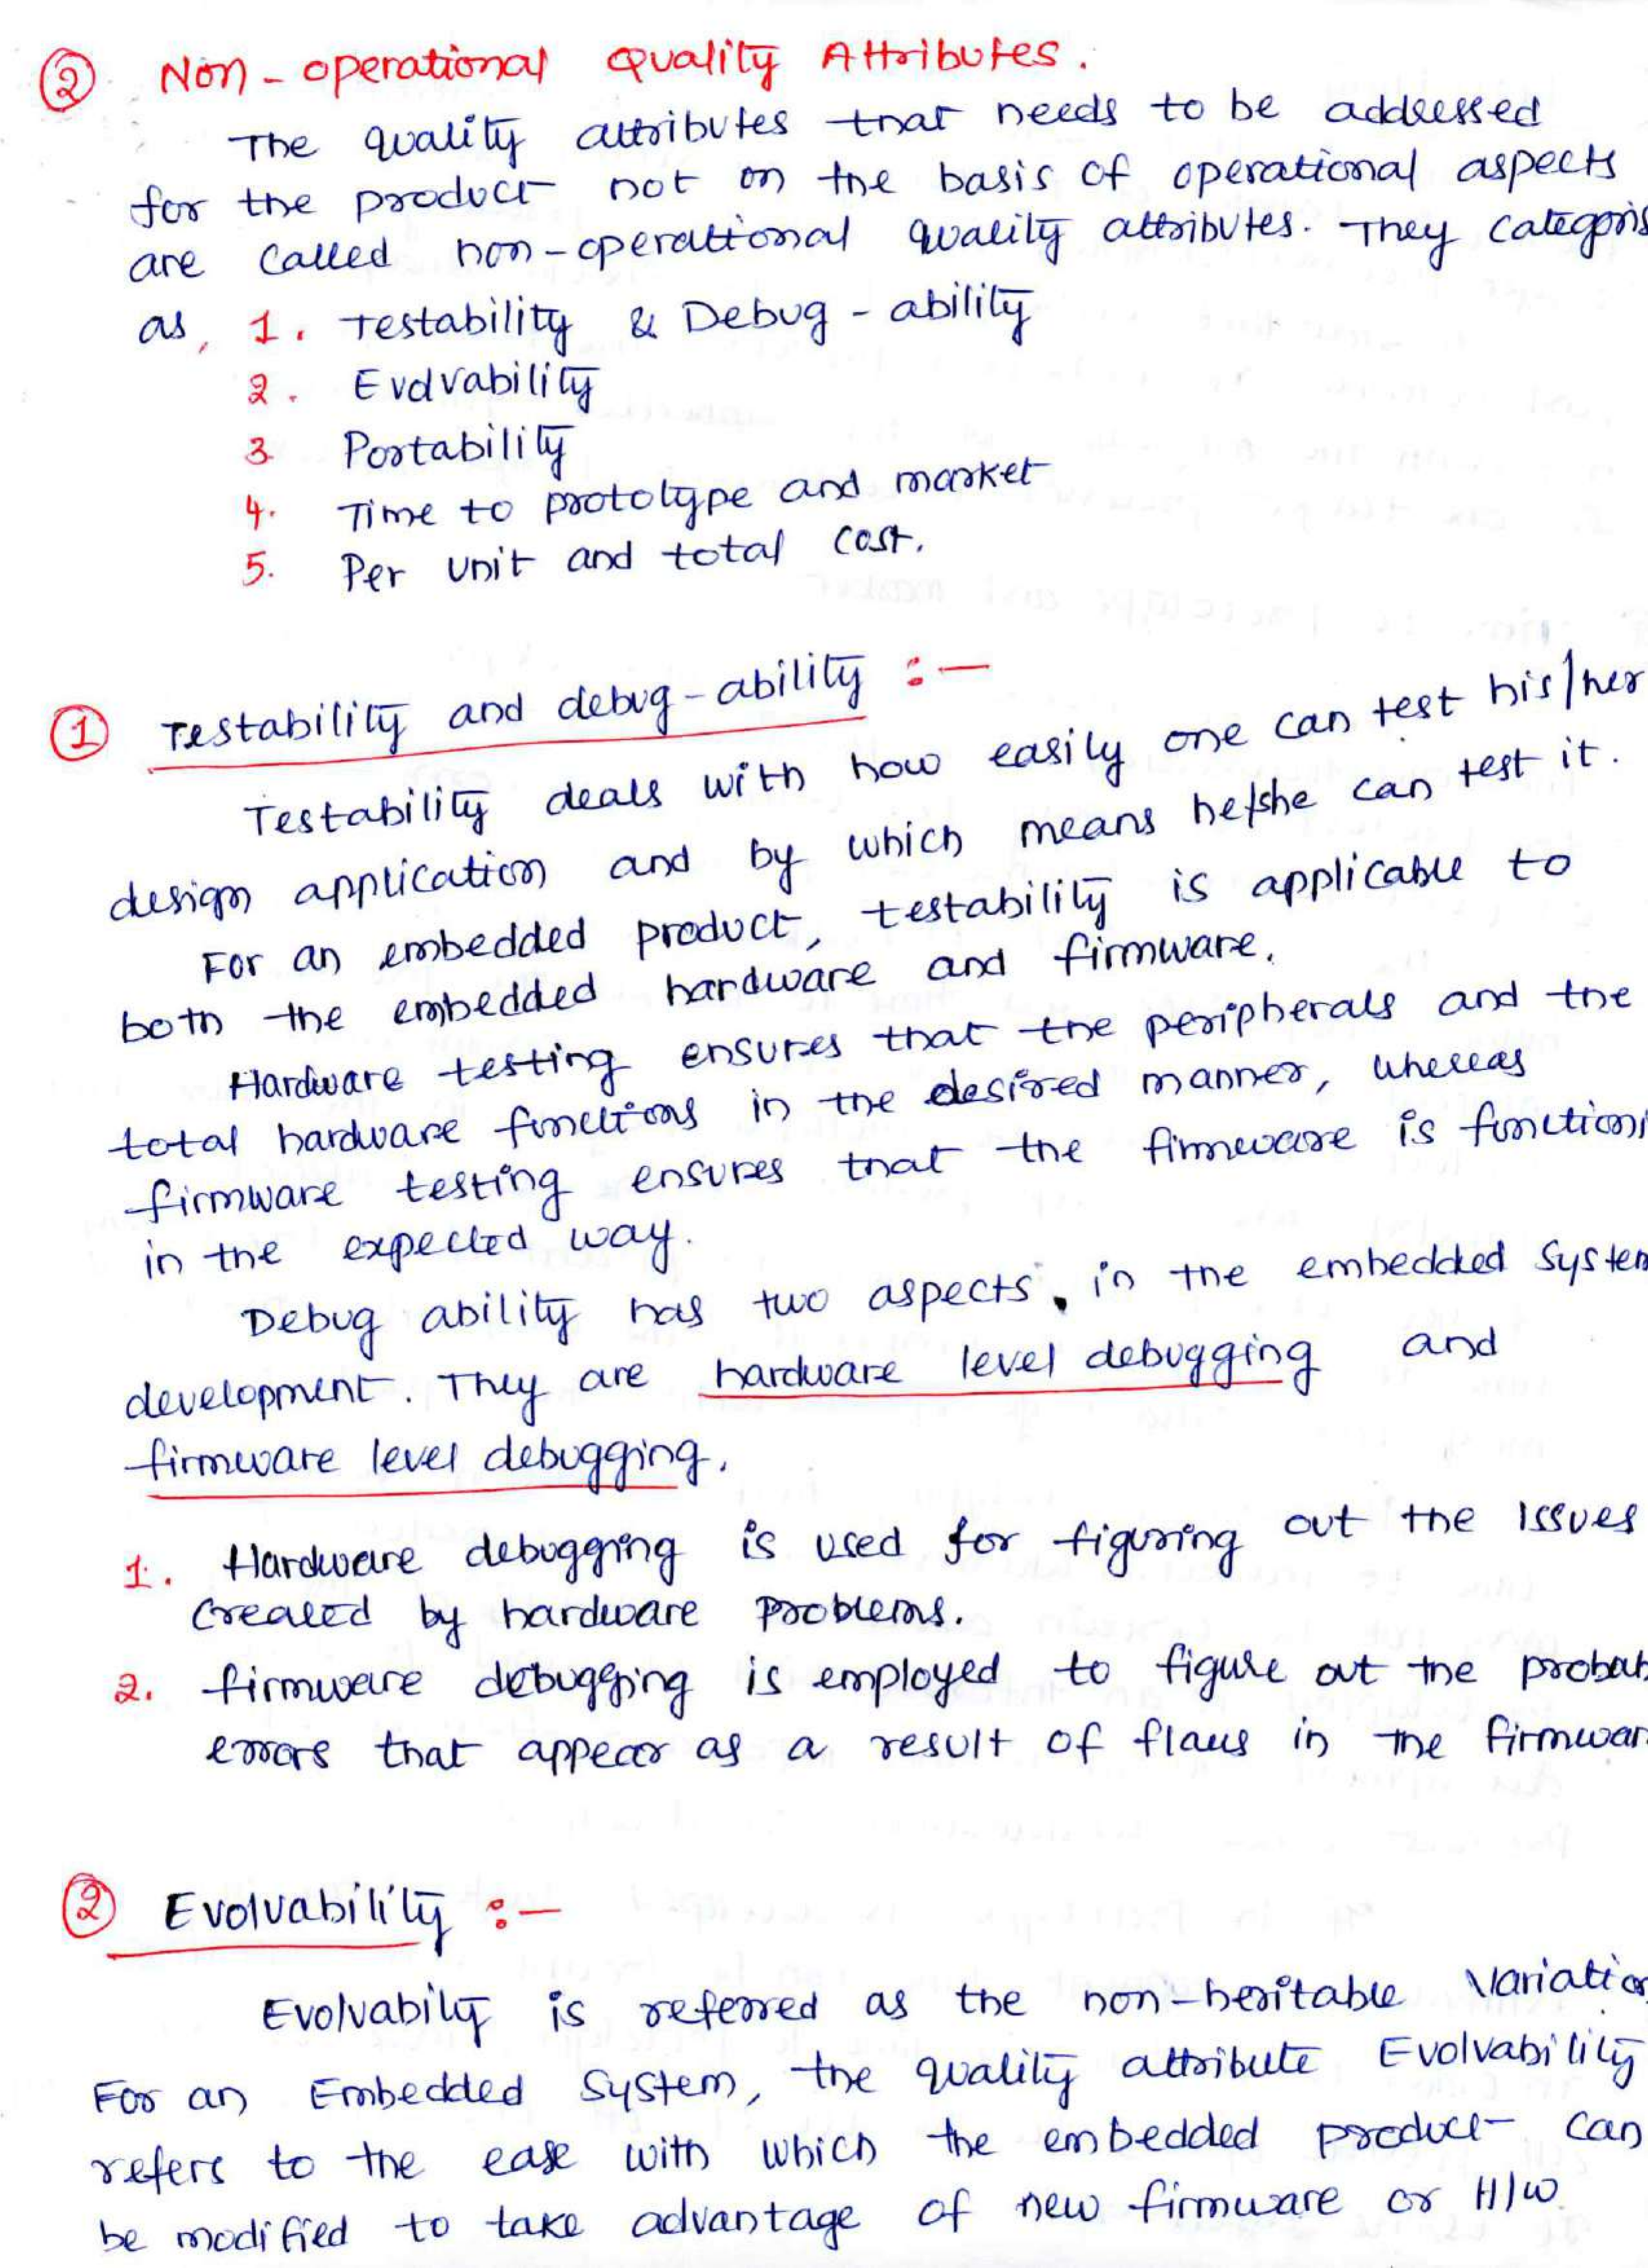 ② Non-operational Quality Attributes.
The quality attributes that needs to be addressed
for the product not on the basis of operational aspects
are called non-operational quality attributes. They categoris
as, 1. Testability & Debug-ability
2. Evolvability
3 Portability
4. Time to prototype and market
5. Per unit and total cost.
① Testability and debug-ability :-
Testability deals with how easily one can test his/her
design application and by which means he/she can test it.
For an embedded product, testability is applicable to
both the embedded hardware and firmware.
Hardware testing ensures that the peripherals and the
total hardware functions in the desired manner, whereas
firmware testing ensures that the firmware is functioni
in the expected way.
Debug ability has two aspects, in the embedded system
development. They are hardware level debugging and
firmware level debugging.
1. Hardware debugging is used for figuring out the issues
created by hardware problems.
2. firmware debugging is employed to figure out the probab
errors that appear as a result of flaws in the firmwar
② Evolvability :-
Evolvabily is referred as the non-heritable variation
For an Embedded System, the quality attribute Evolvability
refers to the ease with which the embedded product can
be modified to take advantage of new firmware or H/W